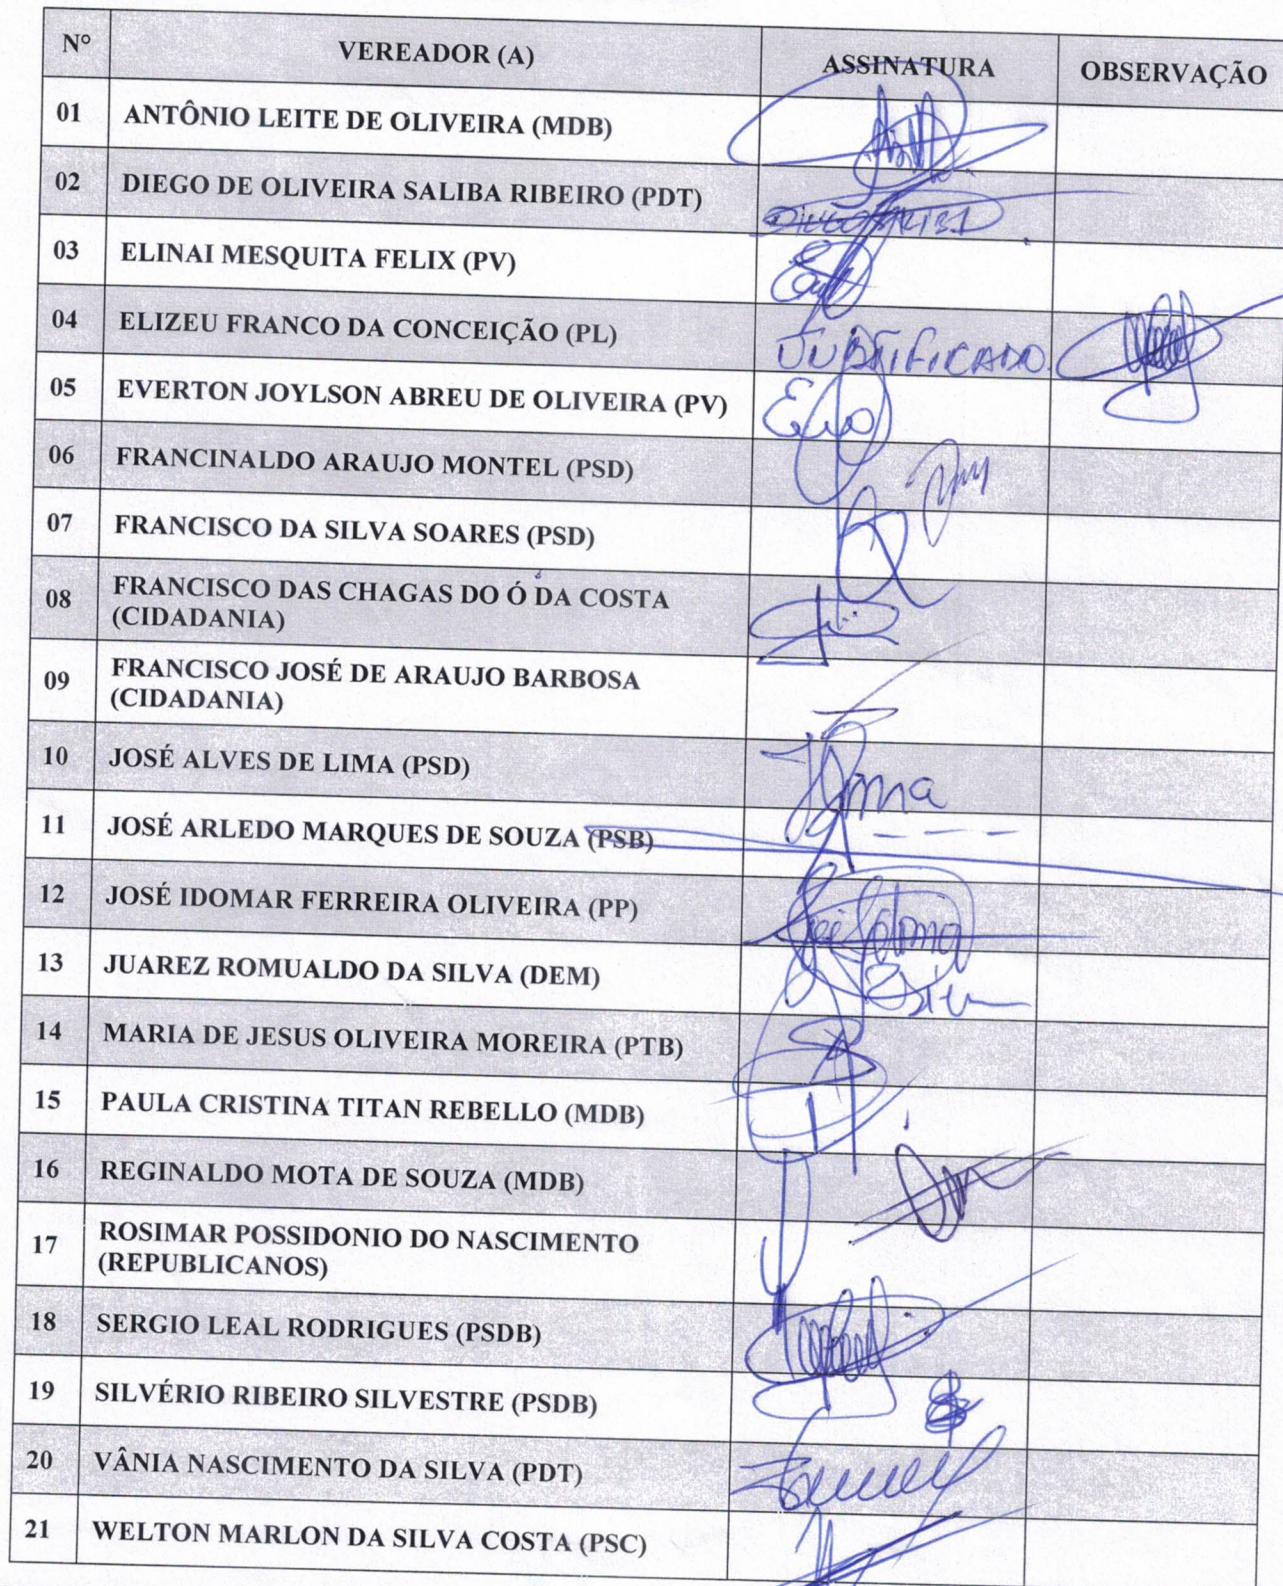 N° VEREADOR (A) ASSINATURA OBSERVAÇÃO
01 ANTÔNIO LEITE DE OLIVEIRA (MDB)
02 DIEGO DE OLIVEIRA SALIBA RIBEIRO (PDT)
03 ELINAI MESQUITA FELIX (PV)
04 ELIZEU FRANCO DA CONCEIÇÃO (PL) JUSTIFICADO
05 EVERTON JOYLSON ABREU DE OLIVEIRA (PV)
06 FRANCINALDO ARAUJO MONTEL (PSD)
07 FRANCISCO DA SILVA SOARES (PSD)
08 FRANCISCO DAS CHAGAS DO Ó DA COSTA
(CIDADANIA)
09 FRANCISCO JOSÉ DE ARAUJO BARBOSA
(CIDADANIA)
10 JOSÉ ALVES DE LIMA (PSD)
11 JOSÉ ARLEDO MARQUES DE SOUZA (PSB)
12 JOSÉ IDOMAR FERREIRA OLIVEIRA (PP)
13 JUAREZ ROMUALDO DA SILVA (DEM)
14 MARIA DE JESUS OLIVEIRA MOREIRA (PTB)
15 PAULA CRISTINA TITAN REBELLO (MDB)
16 REGINALDO MOTA DE SOUZA (MDB)
17 ROSIMAR POSSIDONIO DO NASCIMENTO
(REPUBLICANOS)
18 SERGIO LEAL RODRIGUES (PSDB)
19 SILVÉRIO RIBEIRO SILVESTRE (PSDB)
20 VÂNIA NASCIMENTO DA SILVA (PDT)
21 WELTON MARLON DA SILVA COSTA (PSC)